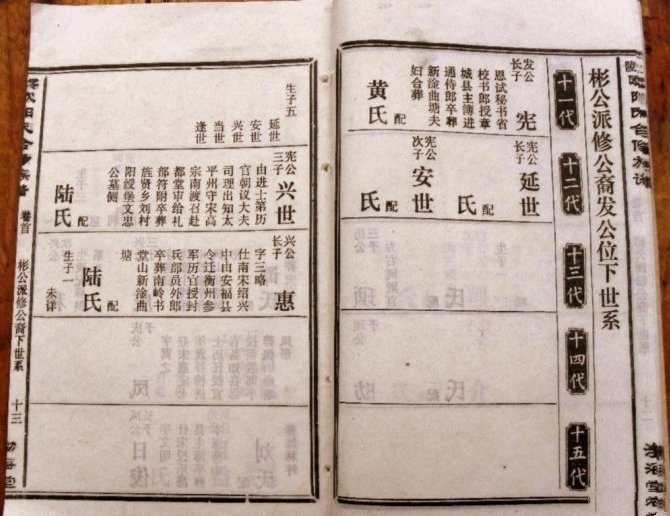 彬公派修公裔发公位下世系
十一代
十二代
十三代
十四代
十五代
发公
长子
宪
恩试秘书省
校书郎授章
城县主簿进
通侍郎卒葬
新淦曲塘夫
妇合葬
配
黄氏
宪公
长子
延世
配
氏
宪公
次子
安世
配
氏
生子五
延世
安世
兴世
当世
逢世
宪公
三子
兴世
由进士第历
官朝议大夫
司理出知太
平州守宋高
宗南渡召赴
都堂审给礼
部符附卒葬
旌贤乡刘村
阳绥堡文忠
公墓侧
配
陆氏
兴公
长子
惠
字三略
仕南宋绍兴
中由安福县
令迁衡州参
军历官授封
兵部员外郎
卒葬南岭书
堂山新淦曲
塘
配
陆氏
生子一
未详
卷首
彬公派修公裔下世系
十三